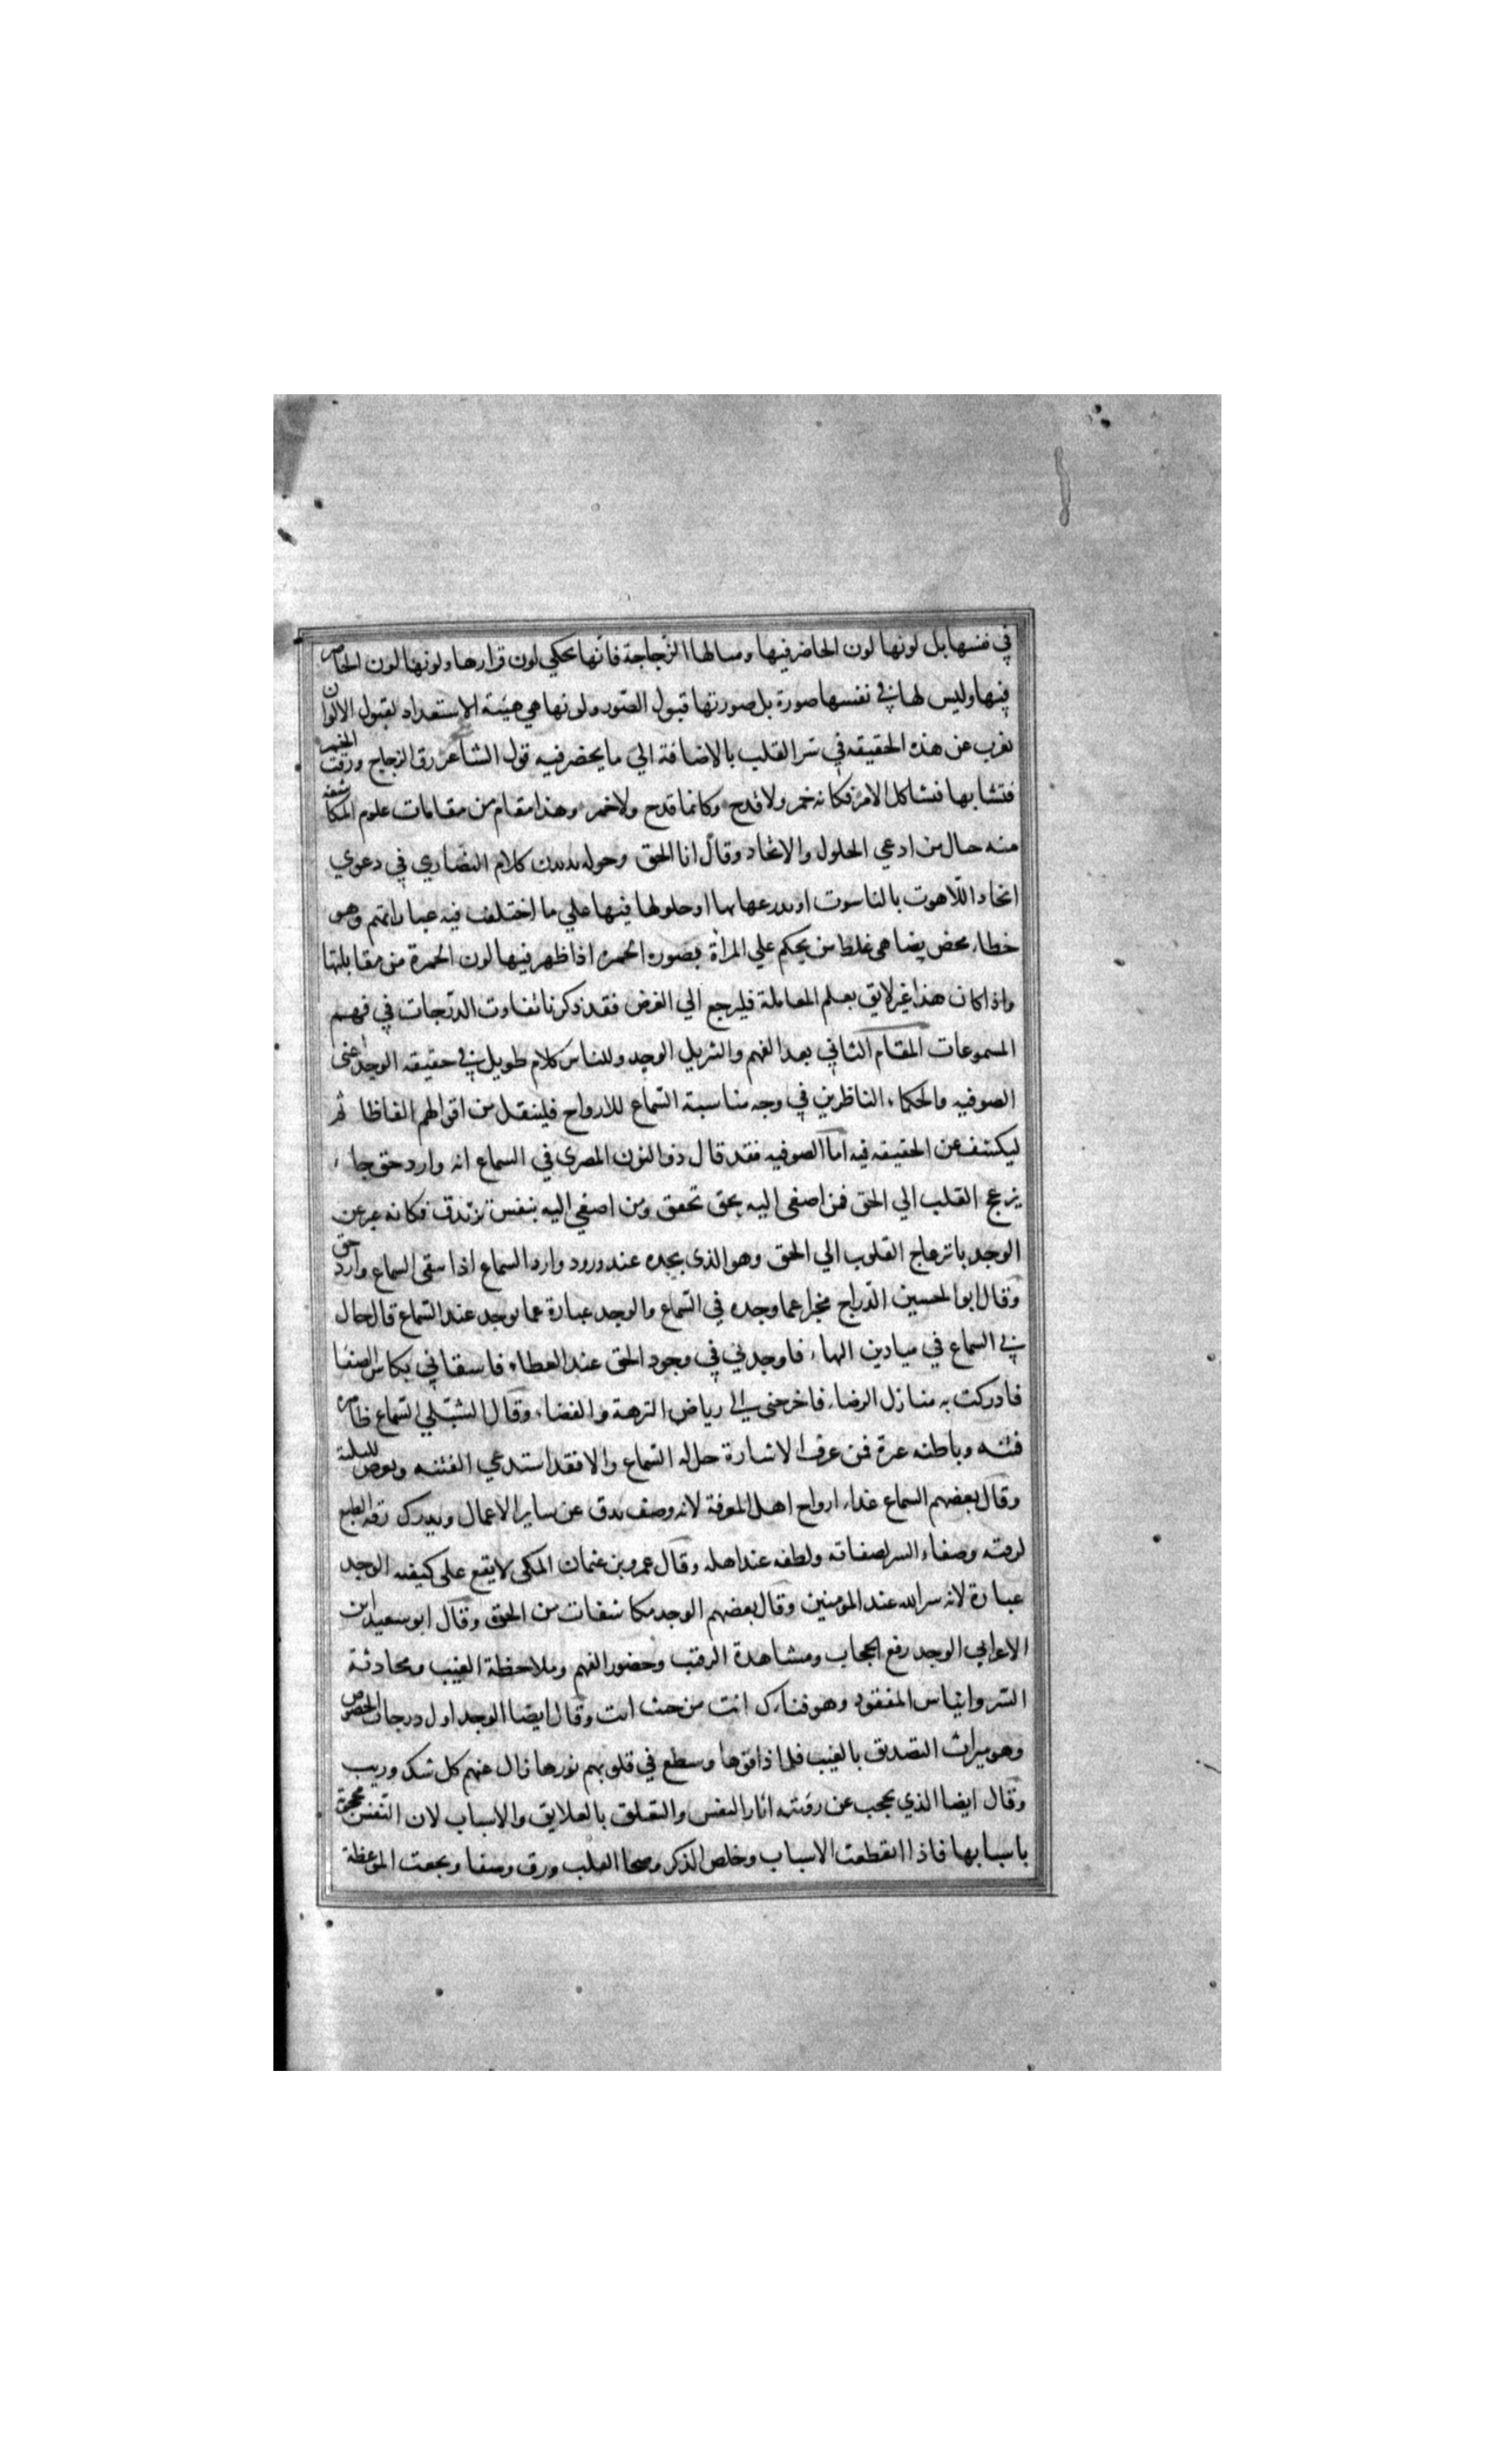 في نفسها بل لونها لون الحاضر فيها ومسالها الزجاجة فانها تحكي لون قرارها ولونها لون الحاضر
فيها وليس لها في نفسها صورة بل صورتها قبول الصور ولونها هي هيئة الاستعداد لقبول الالوان
يغرب عن هذه الحقيقه في سر القلب بالاضافة الي ما يحضر فيه قول الشاعر رق الزجاج ورقت الخمر
فتشابها فتشاكل الامر فكانه خمر ولا قدح وكانما قدح ولا خمر وهذا مقام من مقامات علوم المكاشفه
منه حال من ادعي الحلول والاتحاد وقال انا الحق وحوله يدندن كلام النصاري في دعوي
اتحاد اللاهوت بالناسوت او تدرعها بها او حلولها فيها علي ما اختلف فيه عباراتهم وهو
خطاء محض يضاهي غلط من يحكم علي المراة بصوره الحمره اذا ظهر فيها لون الحمرة من مقابلتها
واذا كان هذا غير لايق بعلم المعاملة فليرجع الي الغرض فقد ذكرنا تفاوت الدرجات في فهم
المسموعات المقام الثاني بعد الفهم والتنزيل الوجد وللناس كلام طويل في حقيقه الوجد اعني
الصوفيه والحكماء الناظرين في وجه مناسبة السماع للارواح فلينقل من اقوالهم الفاظا ثم
ليكشف عن الحقيقه فيه اما الصوفيه فقد قال ذو النون المصري في السماع انه وارد حق جاء
يزعج القلب الي الحق فمن اصغي اليه بحق تحقق ومن اصغي اليه بنفس تزندق فكانه عبر عن
الوجد بانزعاج القلوب الي الحق وهو الذي يجده عند ورود وارد السماع اذا سقي السماع وارد حق
وقال ابو الحسين الدراج مخبرا عما وجده في السماع والوجد عبارة عما يوجد عند السماع قال جال
بي السماع في ميادين البهاء فاوجدني في وجود الحق عند العطاء فاسقاني بكاس الصفا
فادركت به منازل الرضاء فاخرجني الي رياض النزهة والفضاء وقال الشبلي السماع ظاهره
فتنه وباطنه عبرة فمن عرف الاشارة حل له السماع والا فقد استدعي الفتنه وتعرض للبلية
وقال بعضهم السماع غذاء ارواح اهل المعرفة لانه وصف يدق عن ساير الاعمال ويدرك رقه الطبع
لرقته وصفاء السر لصفائه ولطفه عند اهله وقال عمرو بن عثمان المكي لا يقع علي كيفيه الوجد
عبارة لانه سر الله عند المومنين وقال بعضهم الوجد مكاشفات من الحق وقال ابو سعيد ابن
الاعرابي الوجد رفع الحجاب ومشاهدة الرقيب وحضور الفهم وملاحظة الغيب ومحادثة
السر وايناس المفقود وهو فناءك انت من حيث انت وقال ايضا الوجد اول درجات الخصوص
وهو ميراث التصديق بالغيب فلما ذاقوها وسطع في قلوبهم نورها زال عنهم كل شك وريب
وقال ايضا الذي يحجب عن رؤيته اثار النفس والتعلق بالعلايق والاسباب لان النفس محجوبة
باسبابها فاذا انقطعت الاسباب وخلص الذكر وصحا القلب ورق وصفا ونجعت الموعظة